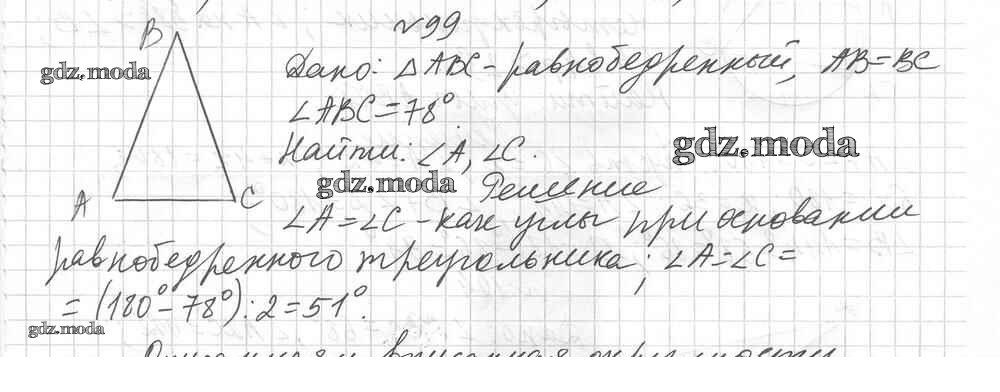 №99
B
gdz.moda
Дано: △ABC - равнобедренный, AB=BC
∠ABC=78°.
Найти: ∠A, ∠C.
gdz.moda
gdz.moda
Решение
A
C
∠A=∠C - как углы при основании
равнобедренного треугольника; ∠A=∠C=
=(180°-78°):2=51°.
gdz.moda